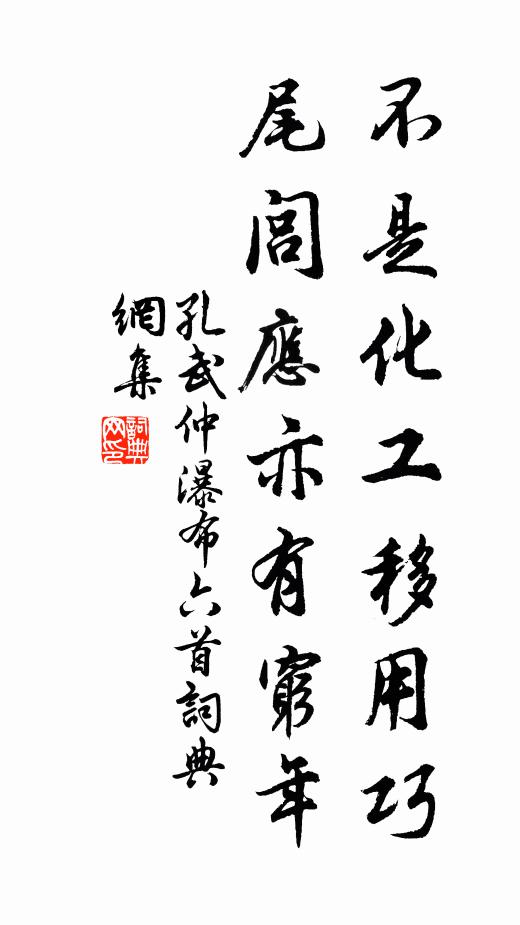 不是化工移用巧
尾閭應亦有窮年
孔武仲瀑布六首詞典
網集
詞典
网印